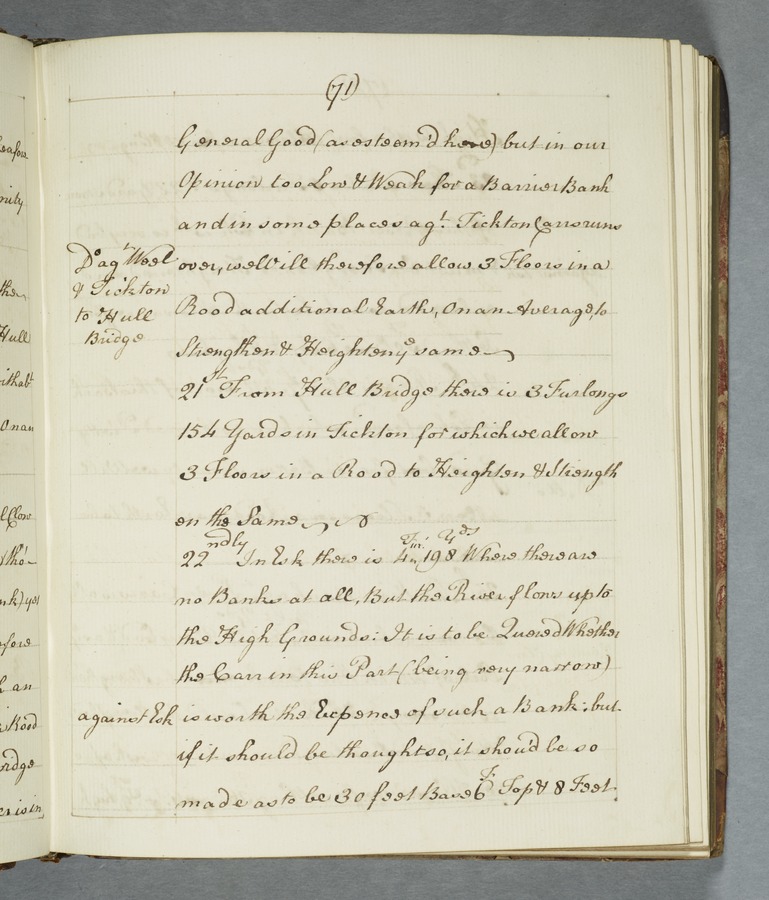 (71)
General Good (as esteem'd here) but in our
Opinion too Low & Weak for a Barrier Bank
and in some places agt. Tickton Carrs runs
Do agt Weel
& Tickton
to Hull
Bridge
over, we will therefore allow 3 Floors in a
Rood additional Earth, On an Average, to
Strengthen & Heighten ye same
21st From Hull Bridge there is 3 Furlongs
154 Yards in Tickton for which we allow
3 Floors in a Rood to Heighten & Strength
en the Same
22ndly In Esk there is 4 198 Yds Where there are
no Banks at all, But the River flows up to
the High Grounds: It is to be Quered Whether
the Carr in this Part (being very narrow)
against Esk
is worth the Expence of such a Bank: but
if it should be thought so, it shou'd be so
made as to be 30 feet Base 6 F. Top & 8 Feet